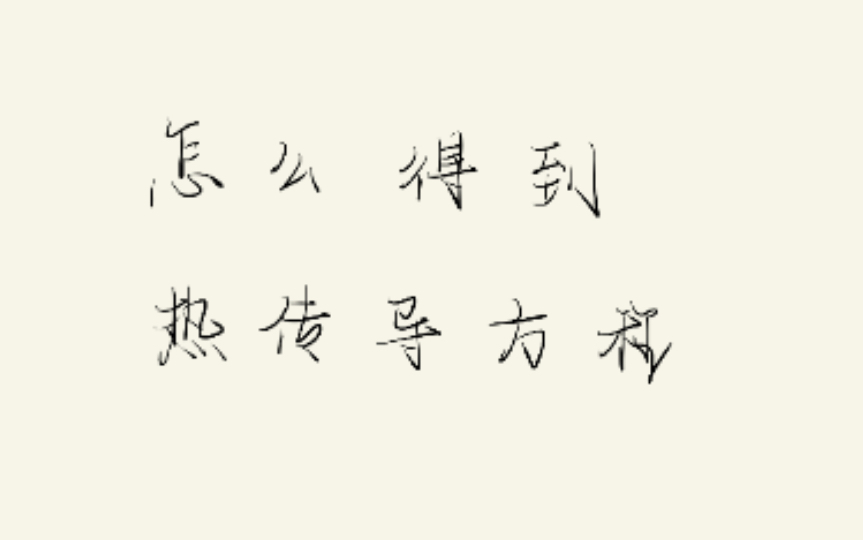 怎么得到
热传导方程